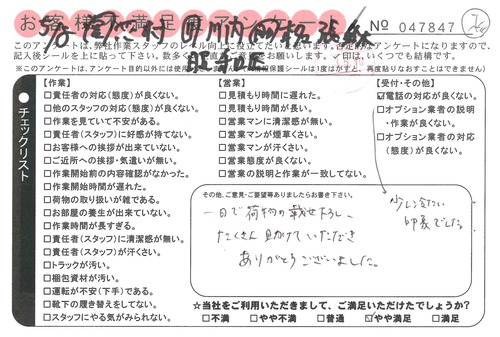 お客様満足度アンケート
№ 047847
このアンケートは、弊社作業スタッフのレベル向上に役立てたいと思います。否定的なアンケートになりますので、
記入後シールを上に貼って下さい。
お願いします。✓印は、いくつでも結構です。
※このアンケートは、アンケート目的以外には使用
報保護シールは1度はがすと、再度貼りなおすことはできません)
チェックリスト
【作業】
□責任者の対応(態度)が良くない。
□他のスタッフの対応(態度)が良くない。
□作業を見ていて不安がある。
□責任者(スタッフ)に好感が持てない。
□お客様への挨拶が出来ていない。
□ご近所への挨拶・気遣いが無い。
□作業開始前の内容確認がなかった。
□作業開始時間が遅れた。
□荷物の取り扱いが雑である。
□お部屋の養生が出来ていない。
□作業時間が長すぎる。
□責任者(スタッフ)に清潔感が無い。
□責任者(スタッフ)が汗くさい。
□トラックが汚い。
□梱包資材が汚い。
□運転が不安(下手)である。
□靴下の履き替えをしてない。
□スタッフにやる気がみられない。
【営業】
□見積もり時間に遅れた。
□見積もり時間が長い。
□営業マンに清潔感が無い。
□営業マンが煙草くさい。
□営業マンが汗くさい。
□営業態度が良くない。
□営業の説明と作業が一致してない。
【受付・その他】
☑電話の対応が良くない。
□オプション業者の説明
・作業が良くない。
□オプション業者の対応
(態度)が良くない。
少し冷たい
印象でした。
その他、ご意見・ご要望等ありましたらお書き下さい。
一日で荷物の載せ下ろし、
たくさん助けていただき
ありがとうございました。
☆当社をご利用いただきまして、ご満足いただけたでしょうか?
□不満 □やや不満 □普通 ☑やや満足 □満足